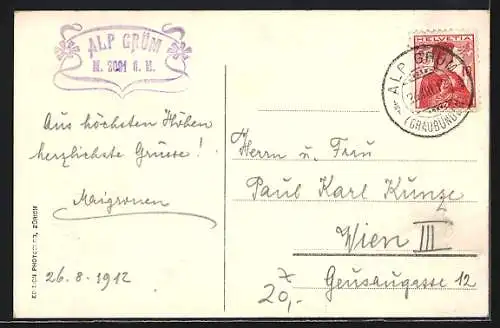 ALP GRÜM
M. 2091 ü. M.
HELVETIA
ALP GRÜM
(GRAUBÜNDEN)
Aus höchsten Höhen
herzlichste Grüsse!
26.8.1912
EDITION PHOTOGLOB, ZÜRICH
Herrn u. Frau
Paul Karl Kunze
Wien III
Geusaugasse 12
20,-